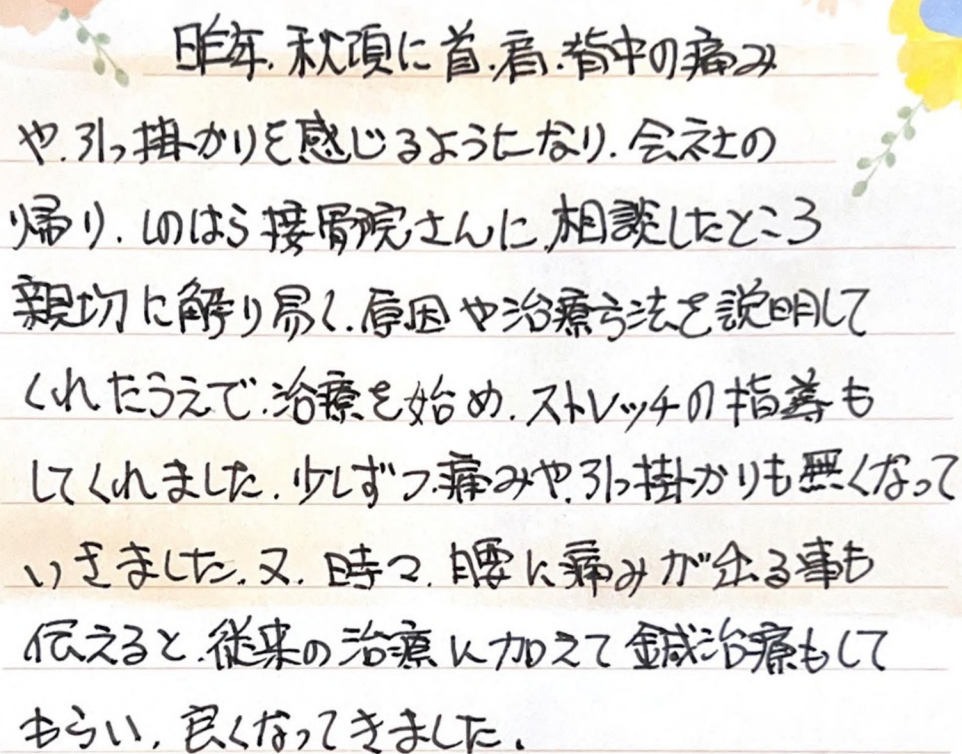 昨年、秋頃に首、肩、背中の痛み
や、引っ掛かりを感じるようになり、会社の
帰り、しのはら接骨院さんに、相談したところ
親切に解り易く、原因や治療方法を説明して
くれたうえで、治療を始め、ストレッチの指導も
してくれました、少しずつ、痛みや、引っ掛かりも無くなって
いきました、又、時々、腰に痛みが出る事も
伝えると、従来の治療に加えて鍼治療もして
もらい、良くなってきました、